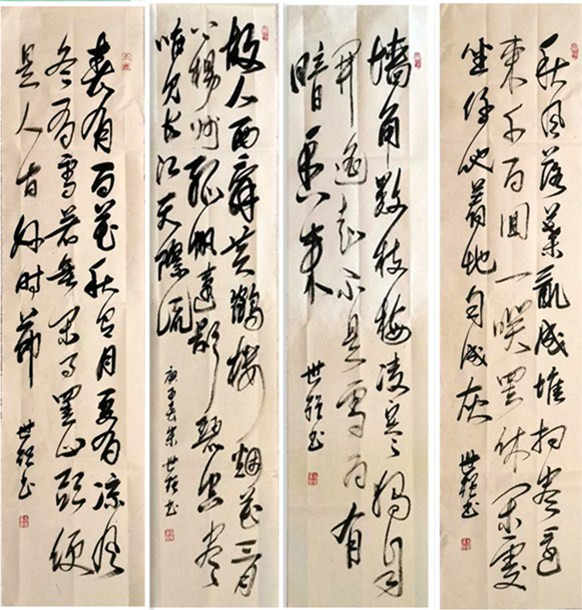 秋風落葉亂成堆扫尽還
来千百回一笑罢休闲處
坐任他著地自成灰 世 书
墙角数枝梅凌寒獨自
開遥知不是雪为有
暗香来 世 书
故人西辞黄鶴楼烟花三月
下揚州孤帆遠影碧空尽
唯见长江天際流 庚子春朱世 书
春有百花秋有月夏有凉風
冬有雪若無闲事罣心頭便
是人间好时節 世 书